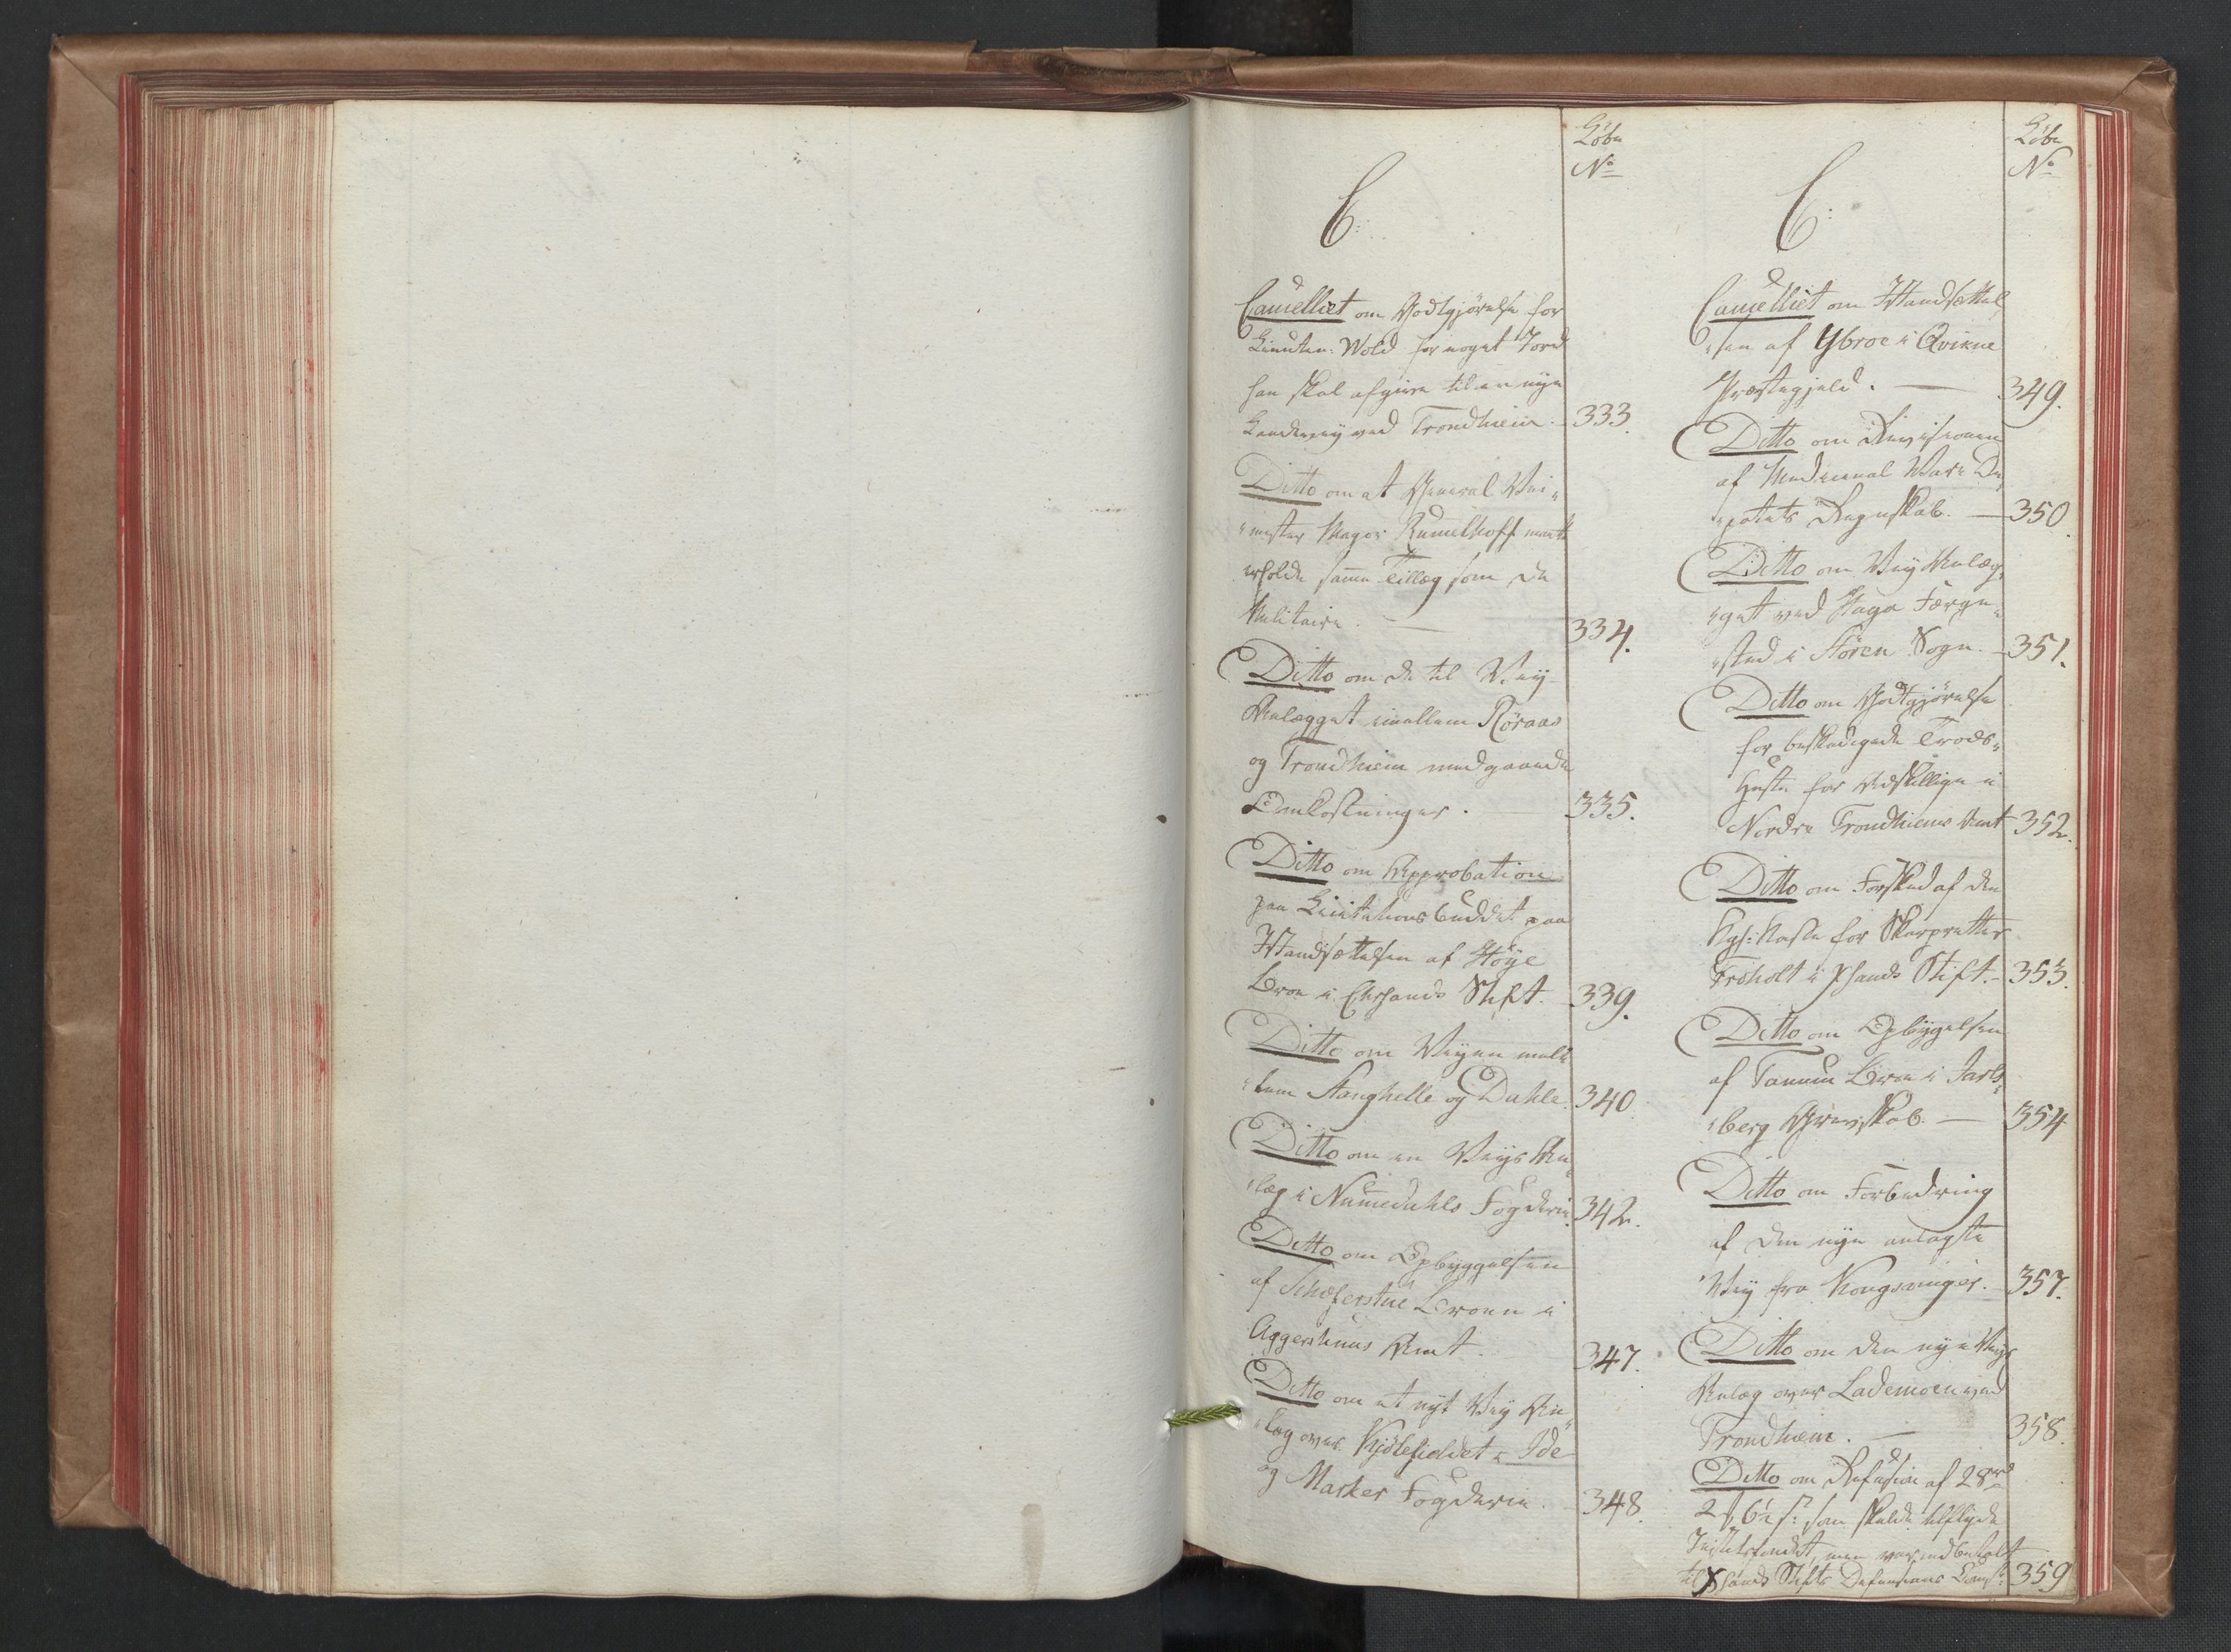 Løbe
No
C:
Cancelliet om Godtgjørelse for
Lieuten: Wold for noget Jord
han skal afgive til en nye
Landevey ved Trondhiem. 333.
Ditto om at General Vei-
mester Major Rumelhoff maatte
erholde samme Tillæg som de
Militaire. 334.
Ditto om de til Vey-
Anlægget imellem Røraas
og Trondhiem medgaaende
Omkostninger. 335.
Ditto om Approbation
paa Licitationsbuddet paa
Istandsættelsen af Høye
Broe i Chrsands Stift. 339.
Ditto om Veyen mel-
lem Stanghelle og Dahle. 340
Ditto om en Veys An-
læg i Nummedahls Fogderie. 342.
Ditto om Opbyggelsen
af Schæferstue Broen i
Aggershuus Amt. 347.
Ditto om et nyt Vey An-
læg over Kjølefieldet i Ide
og Marker Fogderie. 348.
Løbe
No
C:
Cancelliet om Istandsættel-
sen af Ybroe i Qvikne
Præstegjeld. 349.
Ditto om Revisionen
af Medicinal Vare De-
potets Regnskab. 350
Ditto om Vey Anlæg-
get ved Haga Færge-
sted i Støren Sogn. 351.
Ditto om Godtgjørelse
for beskadigede Trods-
Heste for Adskillige i
Nordre Trondhiems Amt 352.
Ditto om Forskud af den
Kgl: Kasse for Skarpretter
Froholt i Xsands Stift. 353.
Ditto om Opbygelsen
af Tanum Broe i Jarls-
berg Grevskab. 354
Ditto om Forbedring
af den nye anlagte
Vey fra Kongsvinger. 357.
Ditto om den nye Veys
Anlæg over Lademoen ved
Trondhiem. 358.
Ditto om Refusion af 28 rd
2 # 6½ s: som skulde tilflyde
Justitsfondet, men var indbetalt
til Xsands Stifts Defensions 359